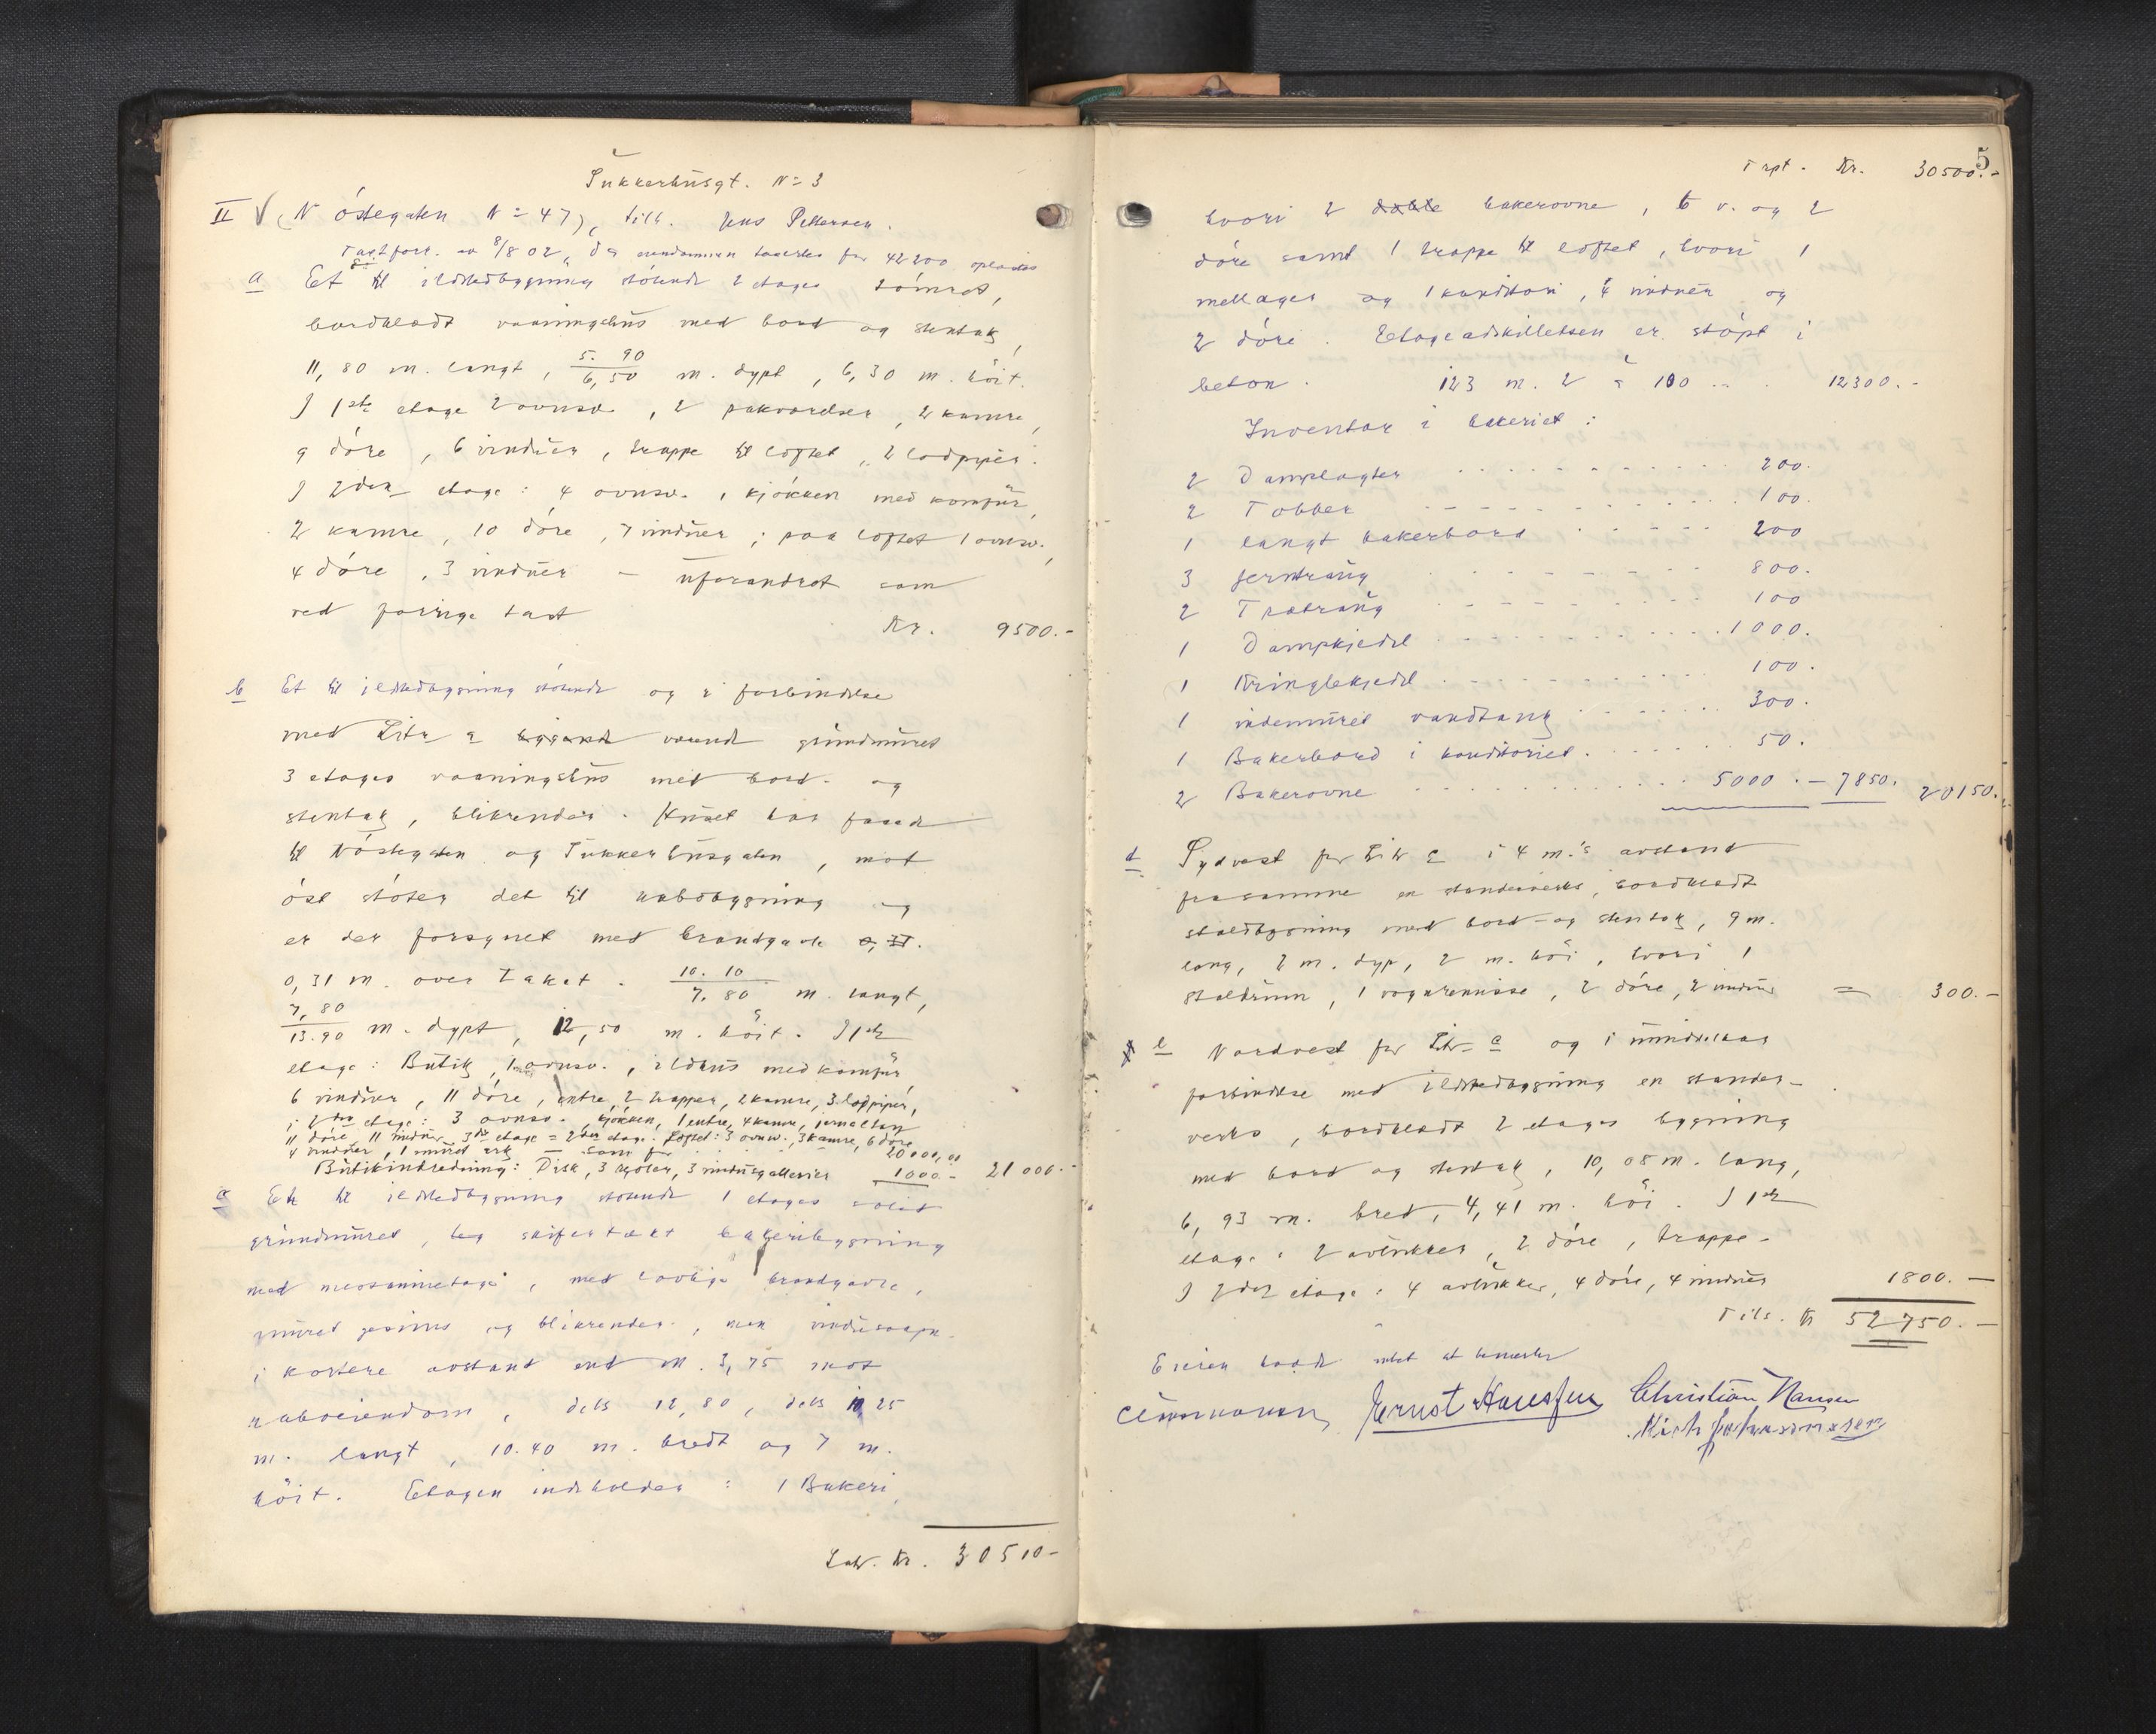 Sukkerhusgt. No 3
II V (Nöstegaten No 47), tilh. Jens Pettersen.
Taxtforr. av 8/8 02, da eiendommen taxertes for 42200 oplæstes
a Et til ildstedbygning stötende 2 etages tömret,
bordklædt vaaningshus med bord og stentag,
11,80 m. langt, 5.90/6,50 m. dypt, 6,30 m. höit.
I 1ste etage 2 ovnsv., 2 pakværelser, 2 kamre,
9 döre, 6 vinduer, trappe til loftet, 2 lodpiper.
I 2den etage: 4 ovnsv. 1 kjökken med komfür,
2 kamre, 10 döre, 7 vinduer; paa loftet 1 ovnsv.,
4 döre, 3 vinduer – uforandret som
ved forrige taxt Kr. 9500.-
b Et til ildstedbygning stötende og i forbindelse
med Litr a værende grundmuret
3 etages vaaningshus med bord- og
stentag, blikrender. Huset har facade
til Nöstegaten og Sukkerhusgaten, mot
öst stöter det til nabobygning og
er der forsynet med brandgavle
0,31 m. over taket. 10.10/7.80 m. langt,
7,80/13.90 m. dypt, 12,50 m. höit. I 1ste
etage: Butik, 1 ovnsv., ildhus med komfür,
6 vinduer, 11 döre, entre, 2 trapper, 2 kamre, 3 lodpiper,
i 2den etage: 3 ovnsv. kjökken, 1 entre, 4 kamre,
11 döre 11 vinduer 3die etage = 2den etage. Loftet: 3 ovnsv., 3 kamre, 6 döre
4 vinduer, 1 muret ark = som för 20000,00
Butikindredning: Disk, 3 reoler, 3 vindusgallerier 1000.- 21000.-
c Et til ildstedbygning stötende 1 etages solid
grundmuret, skifertækt bakeribygning
med messaninetage, med lovlige brandgavle,
muret gesims og blikrender, men vindusaapn.
i kortere avstand end m. 3,75 mot
naboeiendom, dels 12,80, dels 10 25
m. langt, 10.40 m. bredt og 7 m.
höit. Etagen indeholder: 1 Bakeri,
Lat. Kr. 30510-
5
Trpt. Kr. 30500.-
hvori 2 bakerovne, 6 v. og 2
döre samt 1 trappe til loftet, hvori 1
mellager og 1 konditori, 4 vinduer og
2 döre. Etageadskillelsen er stöpt i
beton. 123 m. 2 à 100 .. 12300.-
Inventar i bakeriet:
2 Damplagter 200.
2 Tobber 100.
1 langt bakerbord 200
3 Jerntraug 800.
2 Trætraug 100
1 Dampkjedel 1000.
1 Kringlekjedel 100.
1 indemuret vandtang 300.
1 Bakerbord i konditoriet 50.
2 Bakerovne 5000.- 7850. 20150.
d Sydvest for Litr c i 4 m.'s avstand
fra samme en standerverks, bordklædt
staldbygning med bord- og stentag, 9 m.
lang, 2 m. dyp, 2 m. höi, hvori 1
staldrum, 1 vognremisse, 2 döre, 2 vinduer = 300.-
e Nordvest for Litr c og i umiddelbar
forbindelse med ildstedbygning en stander-
verks, bordklædt 2 etages bygning
med bord og stentag, 10,08 m. lang,
6,93 m. bred, 4,41 m. höi. I 1ste
etage: 2 avlukker, 2 döre, trappe.
I 2den etage: 4 avlukker, 4 döre, 4 vinduer 1800.-
Tils. Kr 52750.-
Eieren hadde intet at bemerke
Ernst Christian Hansen